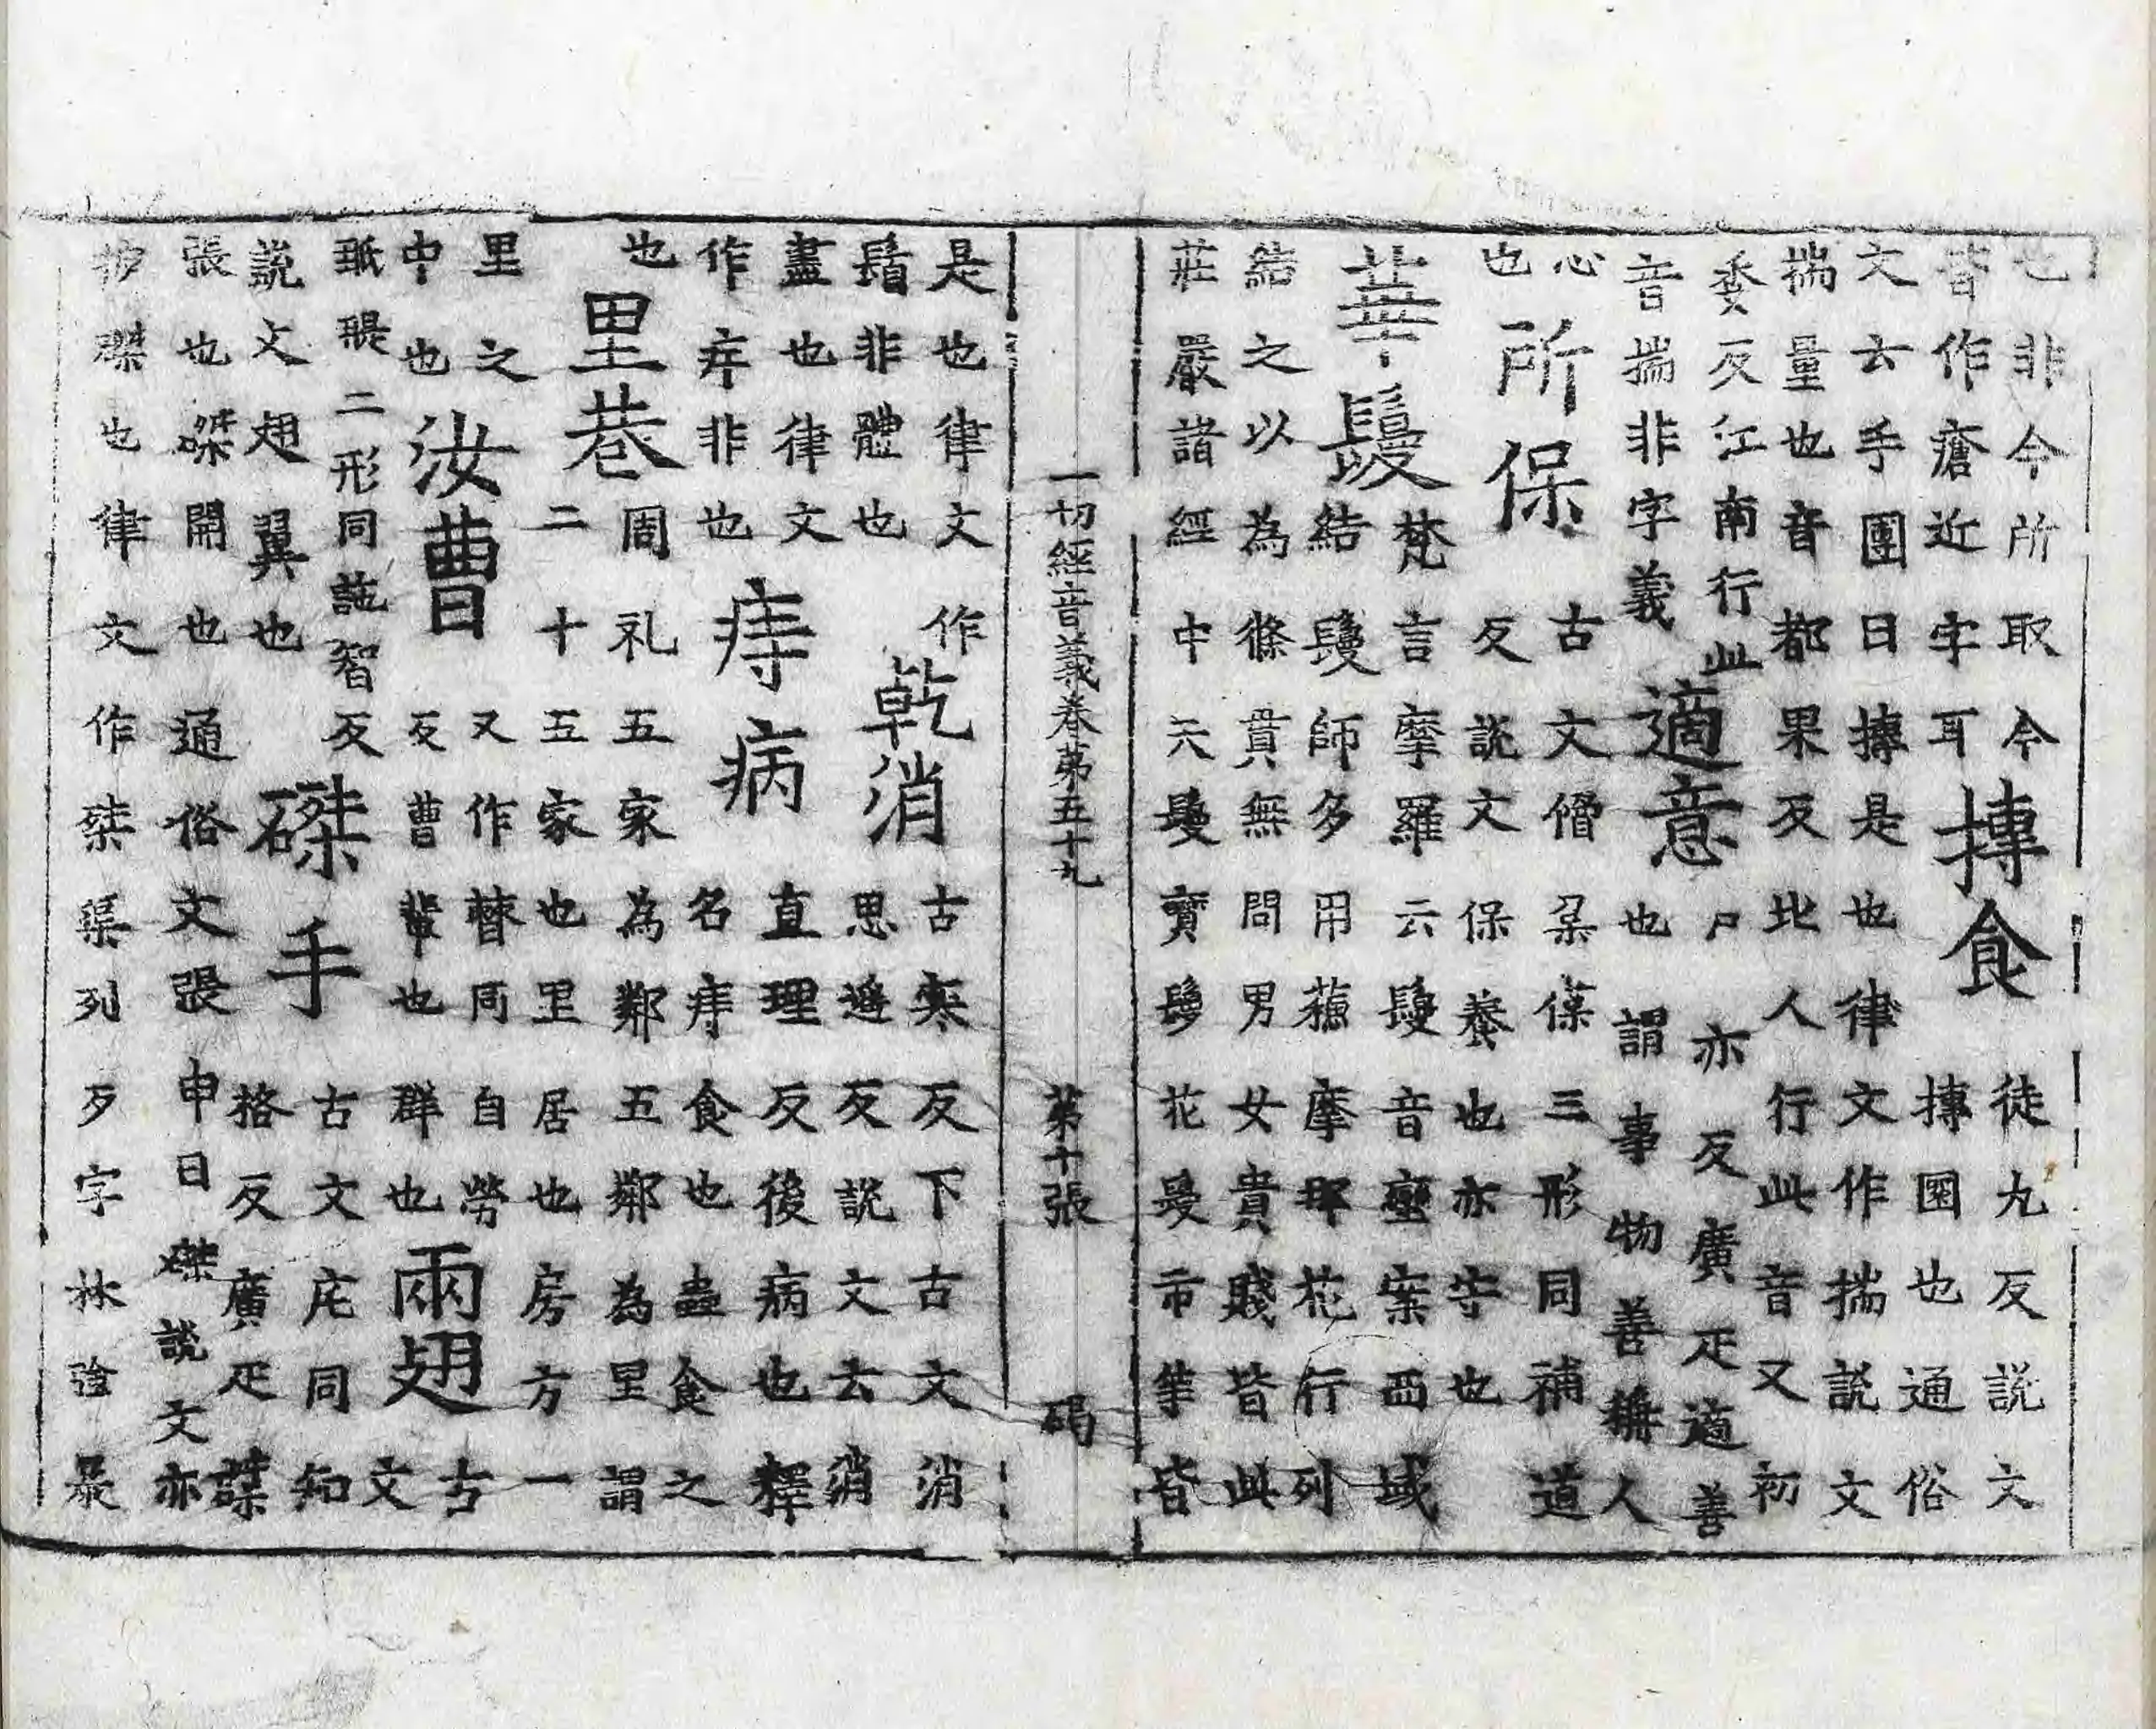 也非今所取今
皆作瘡近字耳
摶食
徒九反說文
摶團也通俗
文云手團曰摶是也律文作揣說文
揣量也音都果反北人行此音又初
委反江南行此
音揣非字義
適意
尸亦反廣疋適善
也謂事物善稱人
心
也
所保
古文𠈃葆三形同補道
反說文保養也亦守也
華鬘
梵言摩羅云鬘音蠻案西域
結鬘師多用蘇摩那花行列
結之以為條貫無問男女貴賤皆此
莊嚴諸經中天鬘寶鬘花鬘市等皆
一切經音義卷第五十九 第十張 碣
是也律文作
非體也
乾消
古寒反下古文消
思遙反說文云消
盡也律文
作非也
痔病
直理反後病也釋
名痔食也蟲食之
也
里巷
周礼五家為鄰五鄰為里謂
二十五家也里居也房方一
里之
中也
汝曹
又作同自勞
反曹輩也群也
兩翅
古
文
二形同施智反
說文翅翼也
磔手
古文厇同知
格反廣疋磔
張也磔開也通俗文張申曰磔說文亦
磔也律文作桀渠列歹字林